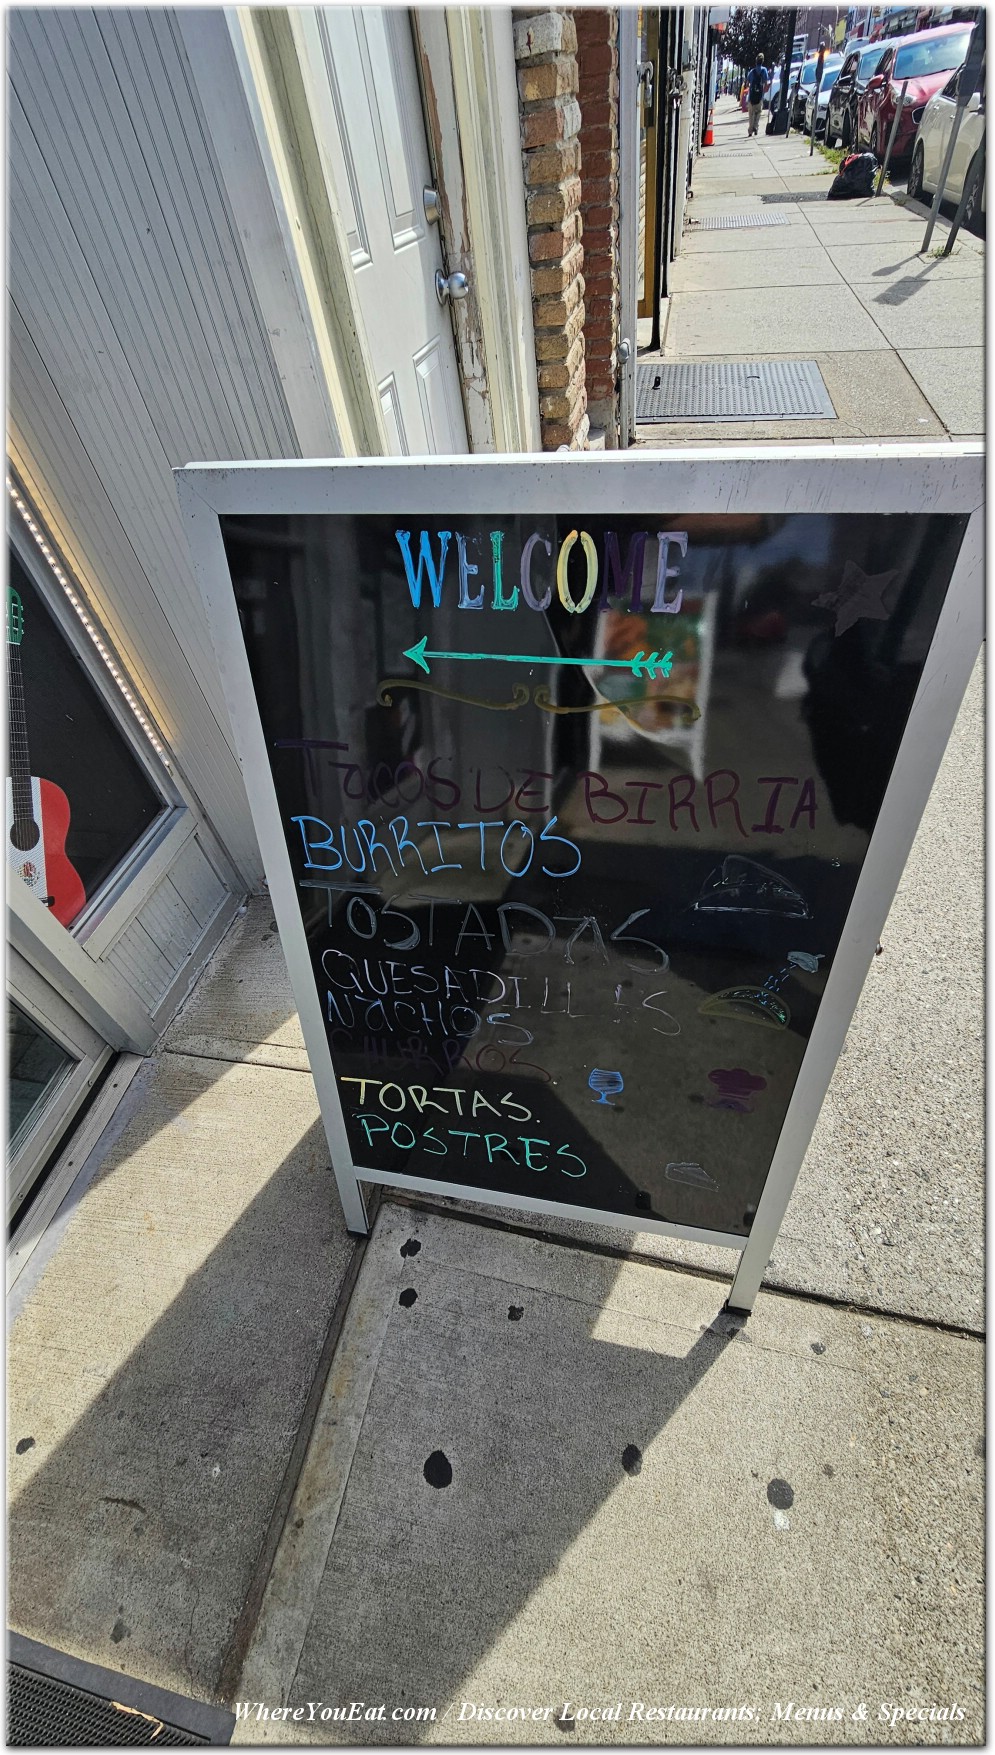 WELCOME
TacOS DE BIRRIA
BURRITOS
TOSTADAS
QUESADILLAS
NaCHOS
CHURROS
TORTAS.
POSTRES
WhereYouEat.com / Discover Local Restaurants, Menus & Specials